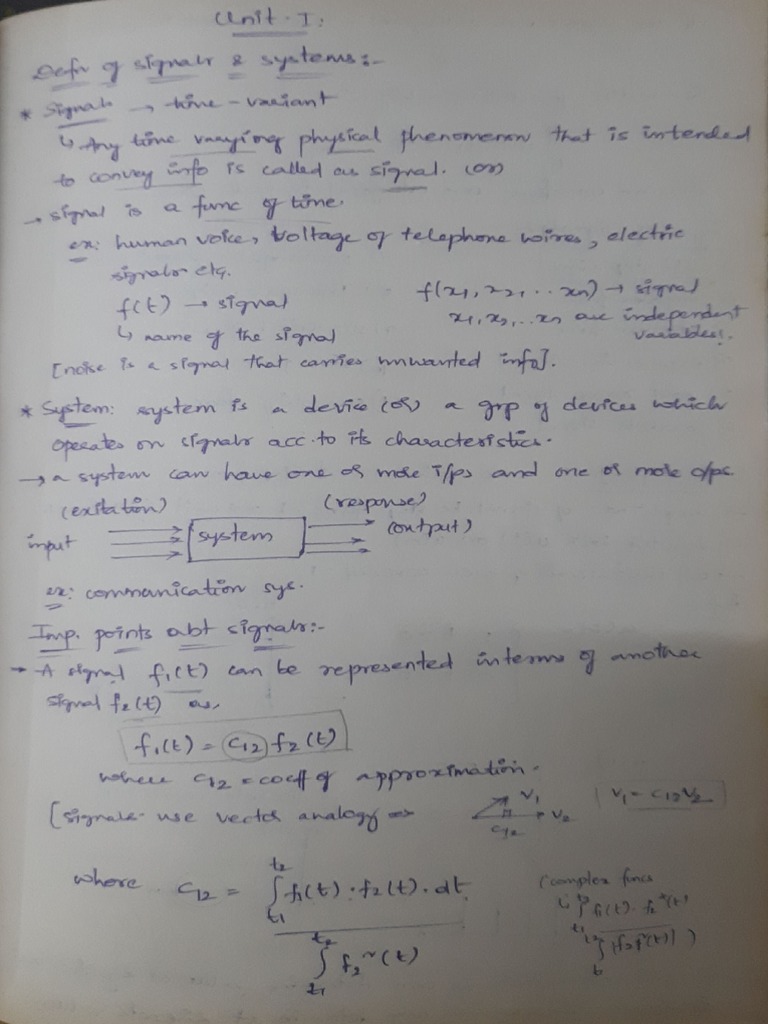 Unit-I.
Defn of signals & systems:-
* Signals → time-variant
↳ Any time varying physical phenomenon that is intended
to convey info is called as signal. (or)
→ signal is a func of time.
ex: human voice, voltage of telephone wires, electric
signals etc.
f(t) → signal
↳ name of the signal
f(x1, x2, .. xn) → signal
x1, x2, .. xn are independent
variables.
[noise is a signal that carries unwanted info].
* System: system is a device (or) a grp of devices which
operates on signals acc. to its characteristics.
→ a system can have one or more i/ps and one or more o/ps.
(exitation) (response)
input system (output)
ex: communication sys.
Imp. points abt signals:-
→ A signal f1(t) can be represented interms of another
signal f2(t) as,
f1(t) = C12 f2(t)
where C12 = coeff of approximation.
[signals use vector analogy ⇒ V1 V2 C12 V1 = C12V2
where C12 = ∫t1^t2 f1(t) · f2(t) · dt
∫t1^t2 f2²(t)
(complex funcs
↳ ∫ f1(t) · f2*(t)